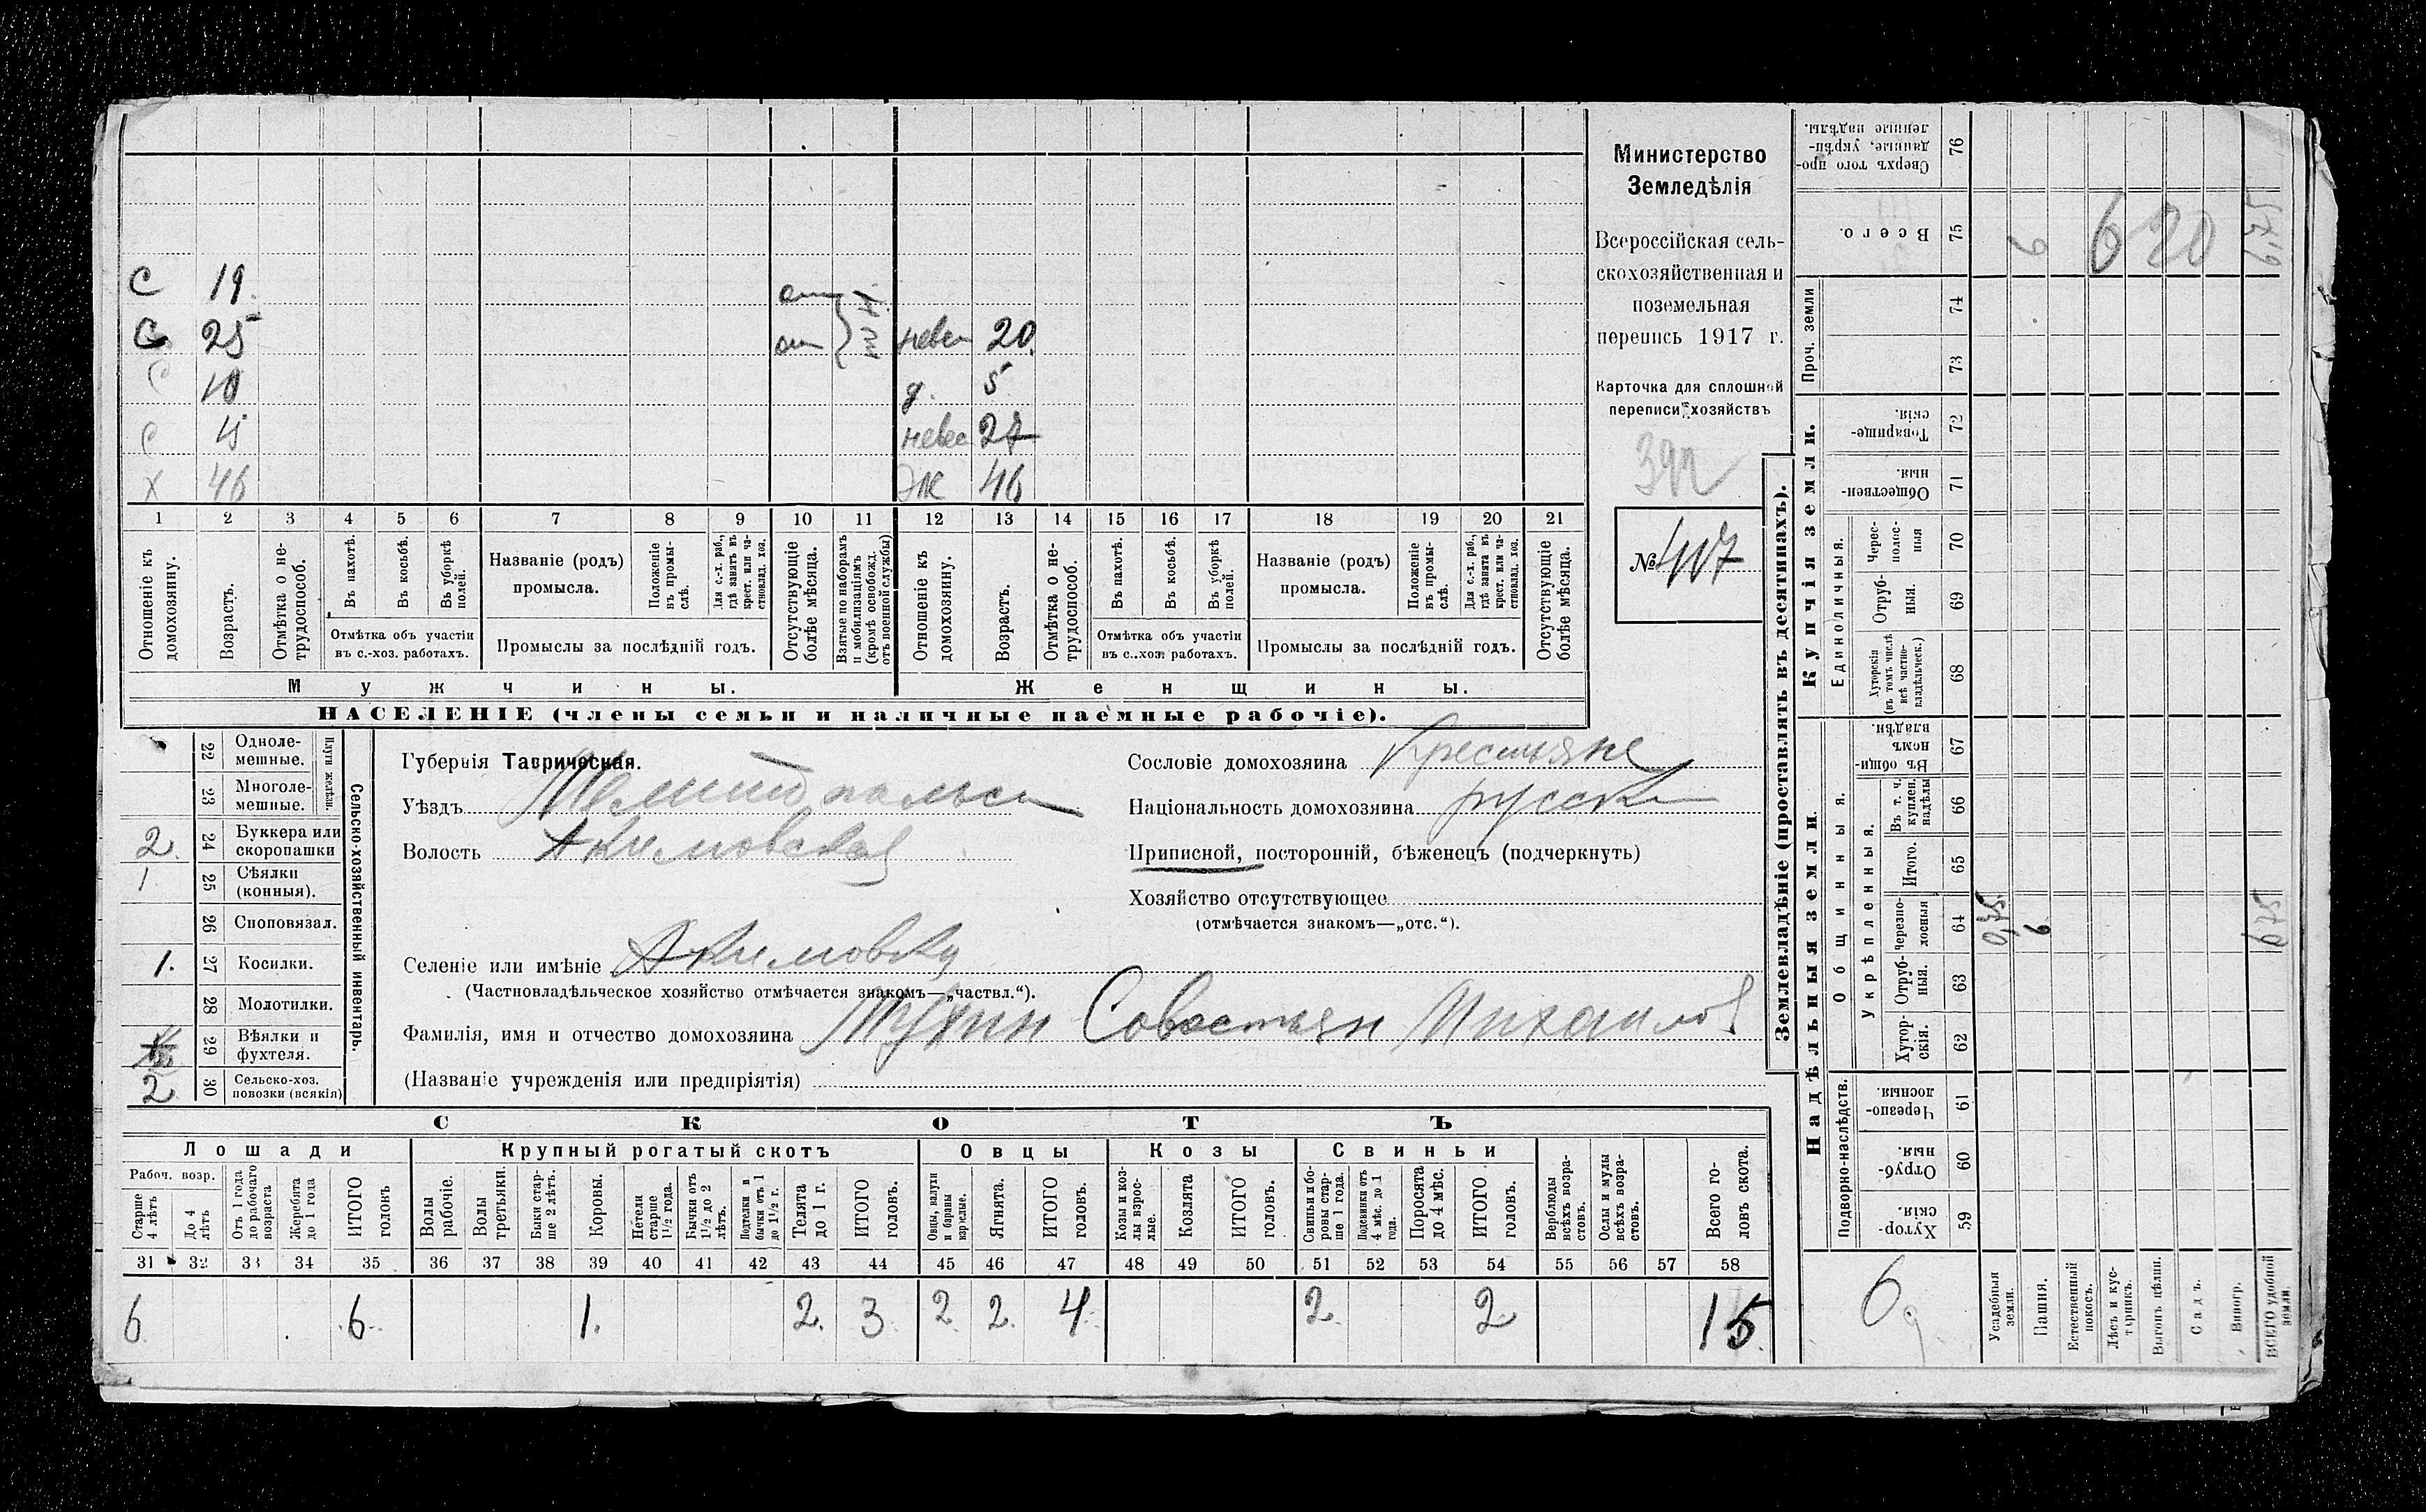 С 19. от
С 25 от невес 20.
С 10 д. 5
С 15 невес 27
Х 46 Ж 46
1 2 3 4 5 6 7 8 9 10 11 12 13 14 15 16 17 18 19 20 21
Отношеніе къ домохозяину.
Возрастъ.
Отмѣтка о нетрудоспособ.
Въ пахотѣ.
Въ косьбѣ.
Въ уборкѣ полей.
Отмѣтка объ участіи
въ с.-хоз. работахъ.
Названіе (родъ)
промысла.
Положеніе въ промыслѣ.
Для с.-х. раб., гдѣ занятъ въ крест. или частновлад. хоз.
Промыслы за послѣдній годъ.
Отсутствующіе болѣе мѣсяца.
Взятые по наборамъ и мобилизаціямъ (кромѣ освобожд. отъ военной службы)
Отношеніе къ домохозяину.
Возрастъ.
Отмѣтка о нетрудоспособ.
Въ пахотѣ.
Въ косьбѣ.
Въ уборкѣ полей.
Отмѣтка объ участіи
въ с.-хоз. работахъ.
Названіе (родъ)
промысла.
Положеніе въ промыслѣ.
Для с.-х. раб., гдѣ занята въ крест. или частновлад. хоз.
Промыслы за послѣдній годъ.
Отсутствующіе болѣе мѣсяца.
Мужчины. Женщины.
НАСЕЛЕНІЕ (члены семьи и наличные наемные рабочіе).
Министерство
Земледѣлія
Всероссійская сель-
скохозяйственная и
поземельная
перепись 1917 г.
Карточка для сплошной
переписи хозяйствъ
392
№ 407
Сельско-хозяйственный инвентарь.
22 Одноле-
мешные.
23 Многоле-
мешные.
2. 24 Буккера или
скоропашки
1 25 Сѣялки
(конныя).
26 Сноповязал.
1. 27 Косилки.
28 Молотилки.
29 Вѣялки и
фухтеля.
2 30 Сельско-хоз.
повозки (всякія)
Губернія Таврическая.
Уѣздъ Мелитопольск
Волость Акимовская
Селеніе или имѣніе Акимовка
(Частновладѣльческое хозяйство отмѣчается знакомъ—„частвл.“).
Фамилія, имя и отчество домохозяина Мухин Совостьян Михаилов
(Названіе учрежденія или предпріятія)
Сословіе домохозяина Крестьяне
Національность домохозяина русск
Приписной, посторонній, бѣженецъ (подчеркнуть)
Хозяйство отсутствующее
(отмѣчается знакомъ—„отс.“).
СКОТЪ
Лошади Крупный рогатый скотъ Овцы Козы Свиньи
Рабоч. возр.
Старше 4 лѣтъ
До 4 лѣтъ
Отъ 1 года до рабочаго возраста
Жеребята до 1 года
ИТОГО головъ
Волы рабочіе.
Волы третьяки.
Быки старше 2 лѣтъ.
Коровы.
Нетели старше 1½ года.
Бычки отъ 1½ до 2 лѣтъ.
Подтелки и бычки отъ 1 до 1½ г.
Телята до 1 г.
ИТОГО головъ.
Овцы, валухи и бараны взрослые.
Ягнята.
ИТОГО головъ.
Козы и козлы взрослые.
Козлята
ИТОГО головъ.
Свиньи и боровы старше 1 года.
Подсвинки отъ 4 мѣс. до 1 года.
Поросята до 4 мѣс.
ИТОГО головъ.
Верблюды всѣхъ возрастовъ.
Ослы и мулы всѣхъ возрастовъ.
Всего головъ скота.
31 32 33 34 35 36 37 38 39 40 41 42 43 44 45 46 47 48 49 50 51 52 53 54 55 56 57 58
6 6 1. 2. 3 2. 2. 4. 2. 2 15.
Землевладѣніе (проставлять въ десятинахъ).
Купчія земли.
Надѣльныя земли.
Сверхъ того проданные, укрѣпленные надѣлы. 76
Всего. 75 6 620 6,75
Проч. земли 74 73
Товарищескія. 72
Общественныя. 71
Единоличныя.
Чересполосныя 70
Отрубныя. 69
Хуторскія (въ томъ числѣ всѣ частновладѣльческ.) 68
Общинныя.
Въ общинномъ владѣн. 67
Укрѣпленныя.
Въ т. ч. куплен. надѣлы 66
Итого. 65
Черезполосныя 64 0,75 6 6,75
Отрубныя. 63
Хуторскія. 62
Подворно-наслѣдств.
Черезполосныя 61
Отрубныя. 60
Хуторскія. 59
6 д.
Усадебныя земли.
Пашня.
Естественный покосъ.
Лѣсъ и кустарникъ.
Выгонъ цѣлин.
Садъ.
Виногр.
ВСЕГО удобной земли.